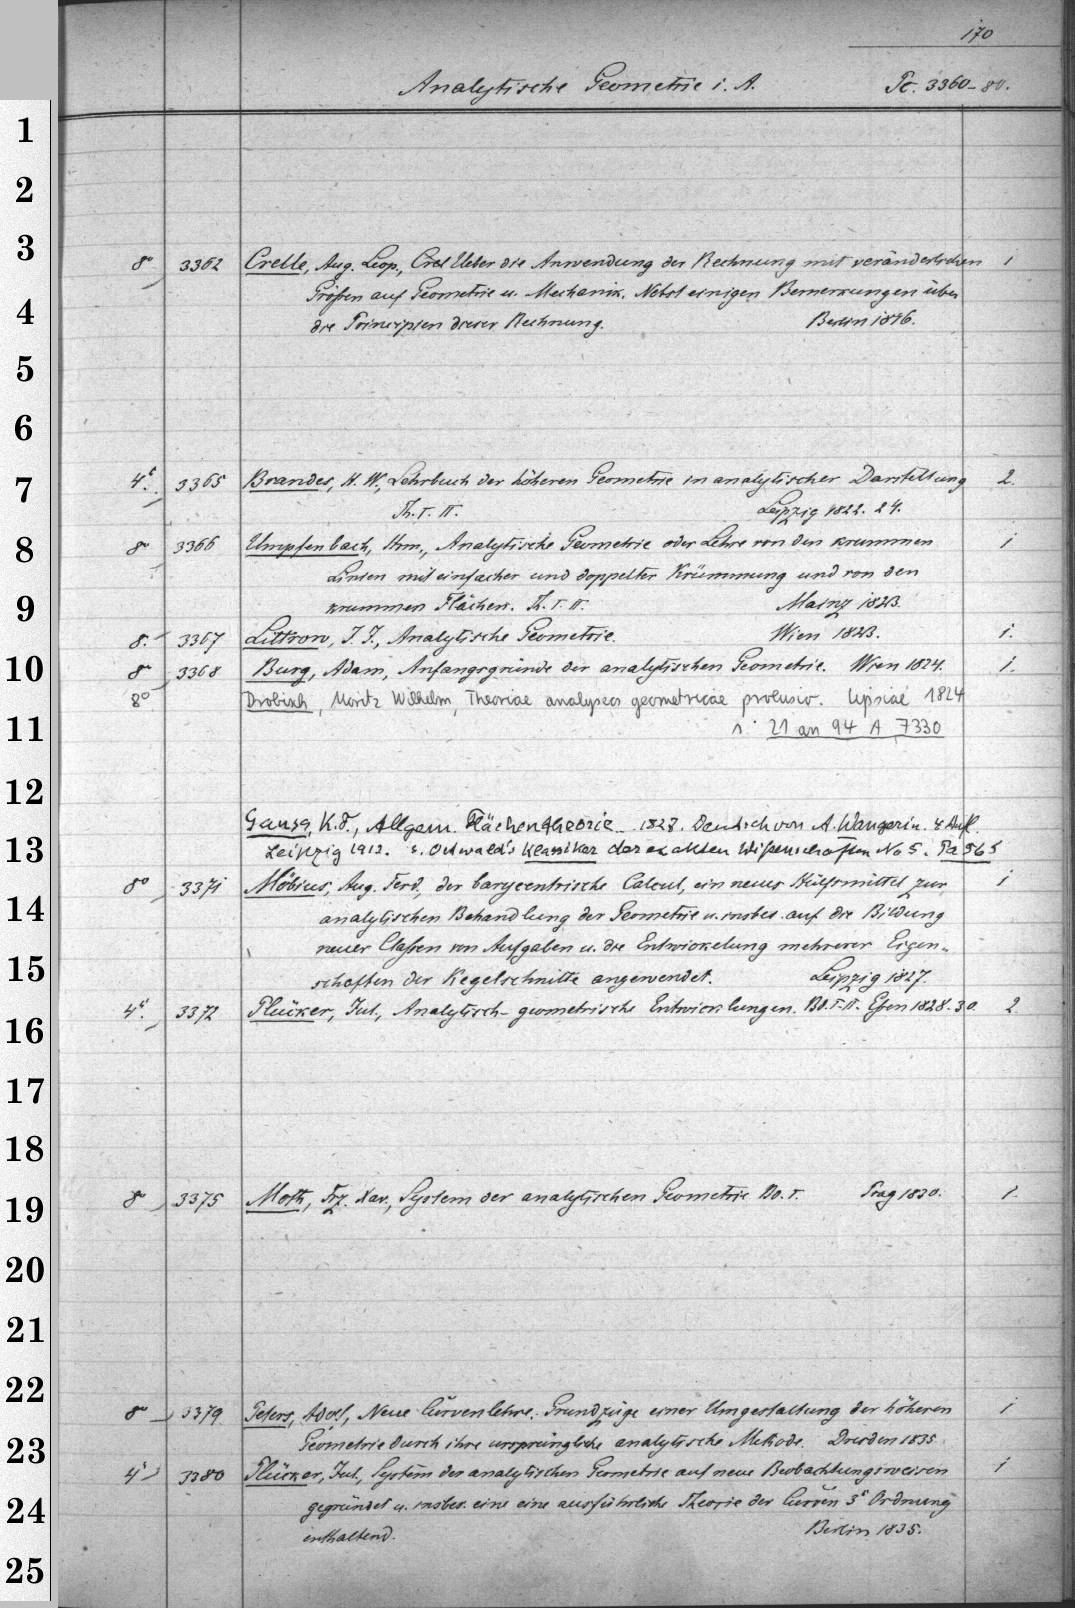 170
Analytische Geometrie i. A. Pc. 3360-80.
1
2
3
8° 3362 Crelle, Aug. Leop., Ueber die Anwendung der Rechnung mit veränderlichen 1
Größen auf Geometrie u. Mechanik. Nebst einigen Bemerkungen über
4
die Principien dieser Rechnung. Berlin 1816.
5
6
7
4° 3365 Brandes, H. W., Lehrbuch der höheren Geometrie in analytischer Darstellung 2.
Th. I. II. Leipzig 1822. 24.
8
8° 3366 Umpfenbach, Hrm., Analytische Geometrie oder Lehre von den krummen 1
Linien mit einfacher und doppelter Krümmung und von den
9
krummen Flächen. Th. I. II. Mainz 1823.
8. 3367 Littrow, J. J., Analytische Geometrie. Wien 1823. 1.
10
8° 3368 Burg, Adam, Anfangsgründe der analytischen Geometrie. Wien 1824. 1.
8° Drobisch, Moritz Wilhelm, Theoriae analyseos geometricae prolusio. Lipsiae 1824
11
21 an 94 A 7330
12
Gauss, K. F., Allgem. Flächentheorie 1827. Deutsch von A. Wangerin. 4 Aufl.
13
Leipzig 1912. s. Ostwald's Klassiker der exakten Wißenschaften No 5. Pa 565
8° 3371 Möbius, Aug. Ferd., der barycentrische Calcul, ein neues Hülfsmittel zur 1
14
analytischen Behandlung der Geometrie u. insbes. auf die Bildung
neuer Classen von Aufgaben u. die Entwickelung mehrerer Eigen-
15
schaften der Kegelschnitte angewendet. Leipzig 1827.
4° 3372 Plücker, Jul., Analytisch-geometrische Entwicklungen. Bd. I-II. Essen 1828-30. 2
16
17
18
19
8° 3375 Moth, Frz. Xav., System der analytischen Geometrie Bd. I. Prag 1830. 1.
20
21
22
8° 3379 Peters, Adolf, Neue Curvenlehre. Grundzüge einer Umgestaltung der höheren 1
23
Geometrie durch ihre ursprüngliche analytische Methode. Dresden 1835
4° 3380 Plücker, Jul., System der analytischen Geometrie auf neue Beobachtungsweisen 1
24
gegründet u. insbes. eine eine ausführliche Theorie der Curven 3r Ordnung
enthaltend. Berlin 1835.
25